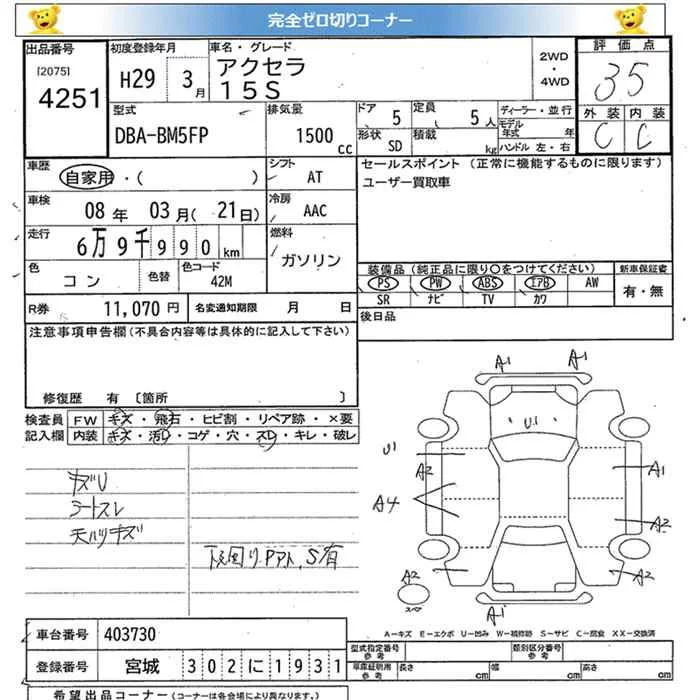 完全ゼロ切りコーナー
出品番号
[2075]
4251
初度登録年月
H29 3月
車名・グレード
アクセラ
15S
2WD
・
4WD
評価点
35
外装 内装
C C
型式
DBA-BM5FP
排気量
1500
cc
ドア 5
定員 5人
形状 SD
積載 kg
ディーラー・並行
モデル
年式 年
ハンドル 左・右
車歴
自家用・( )
シフト
AT
車検
08年 03月( 21日)
冷房
AAC
走行
6万9千990km
燃料
ガソリン
色
コン
色替
色コード
42M
R券 11,070円
名変通知期限 月 日
セールスポイント (正常に機能するものに限ります)
ユーザー買取車
装備品 (純正品に限り○をつけてください)
PS PW ABS エアB AW
SR ナビ TV カワ
新車保証書
有・無
後日品
注意事項申告欄(不具合内容等は具体的に記入して下さい)
修復歴 有 〔箇所 〕
検査員
記入欄
FW キズ・飛石・ヒビ割・リペア跡・×要
内装 キズ・汚れ・コゲ・穴・スレ・キレ・破レ
キズU
シートスレ
天ハリキズ
下廻り.Pアト、S有
A1 A1
U.1
U1
A2
A4
A1
A2
A2
A2
A1
スペア
A-キズ E-エクボ U-凹み W-補修跡 S-サビ C-腐食 XX-交換済
車台番号 403730
登録番号 宮城 302に1931
型式指定番号
参考
類別区分番号
参考
車庫証明用
参考
長さ cm
幅 cm
高さ cm
希望出品コーナー (コーナーは各会場により異なります。)